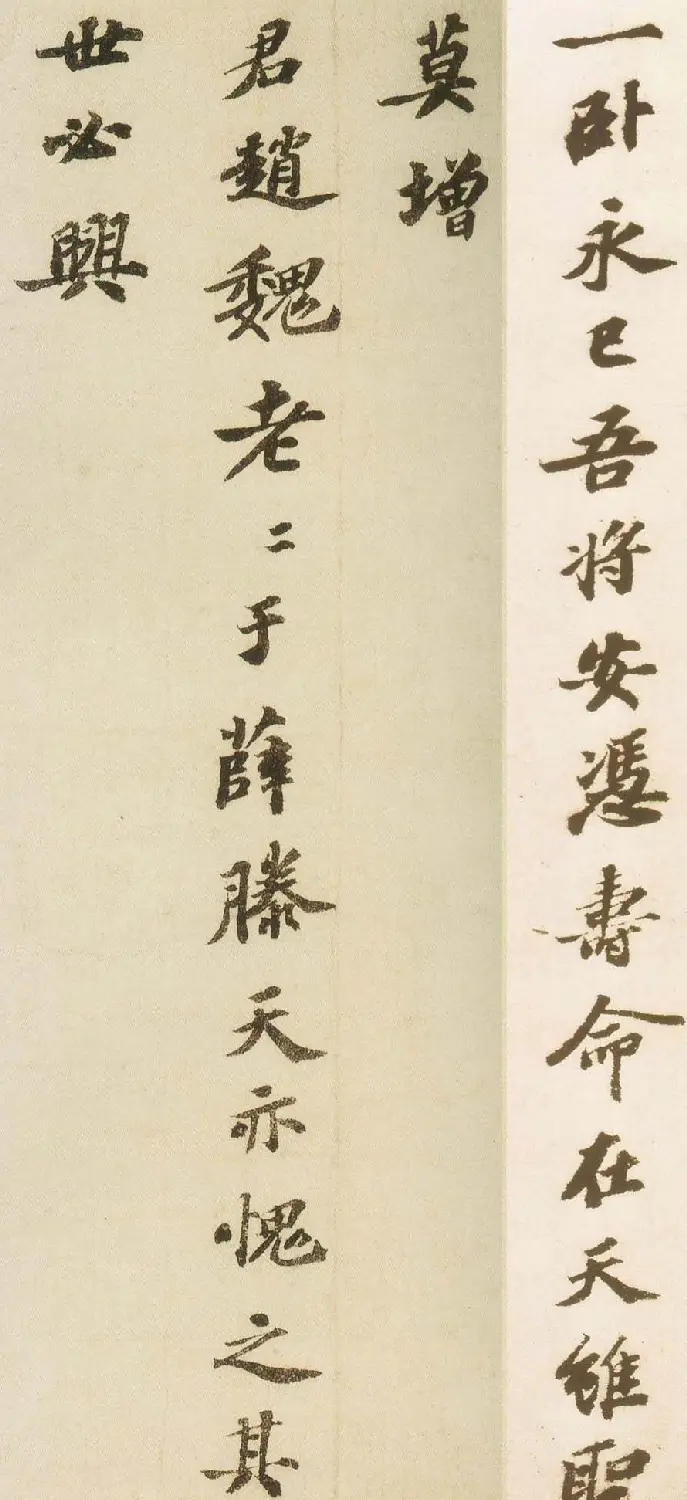 一卧永已吾将安憑壽命在天雖聖
莫增
君趙魏老〻于薛滕天亦愧之其
世必興